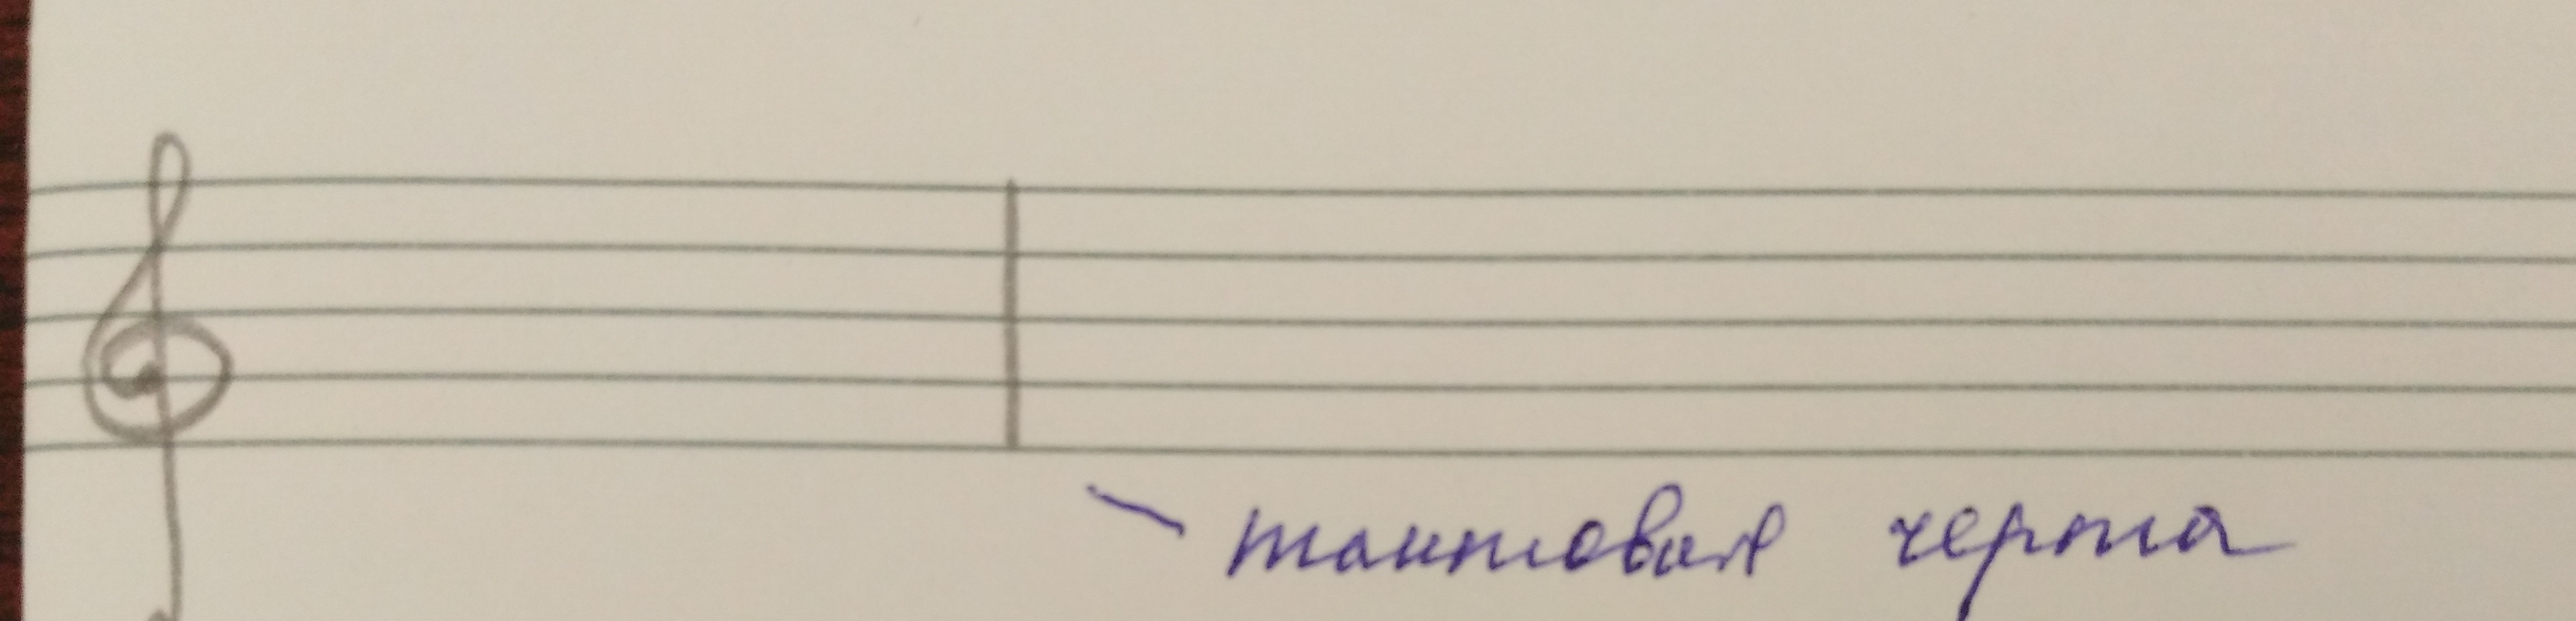 тактовая черта